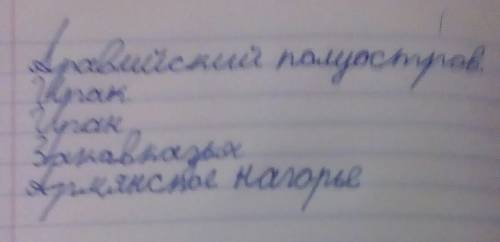 Аравийский полуостров.
Иран
Ирак
Закавказья
Армянское нагорье